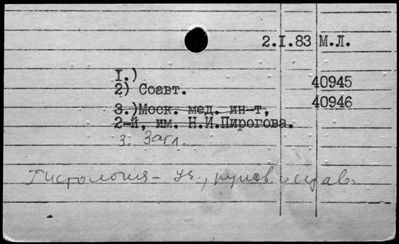 2.I.83 М.Л.
I.)
40945
2) Соавт.
40946
3.) Моск. мед. ин-т,
2-й, им. Н.И.Пирогова.
3. Загл.
Гистология - уч.,